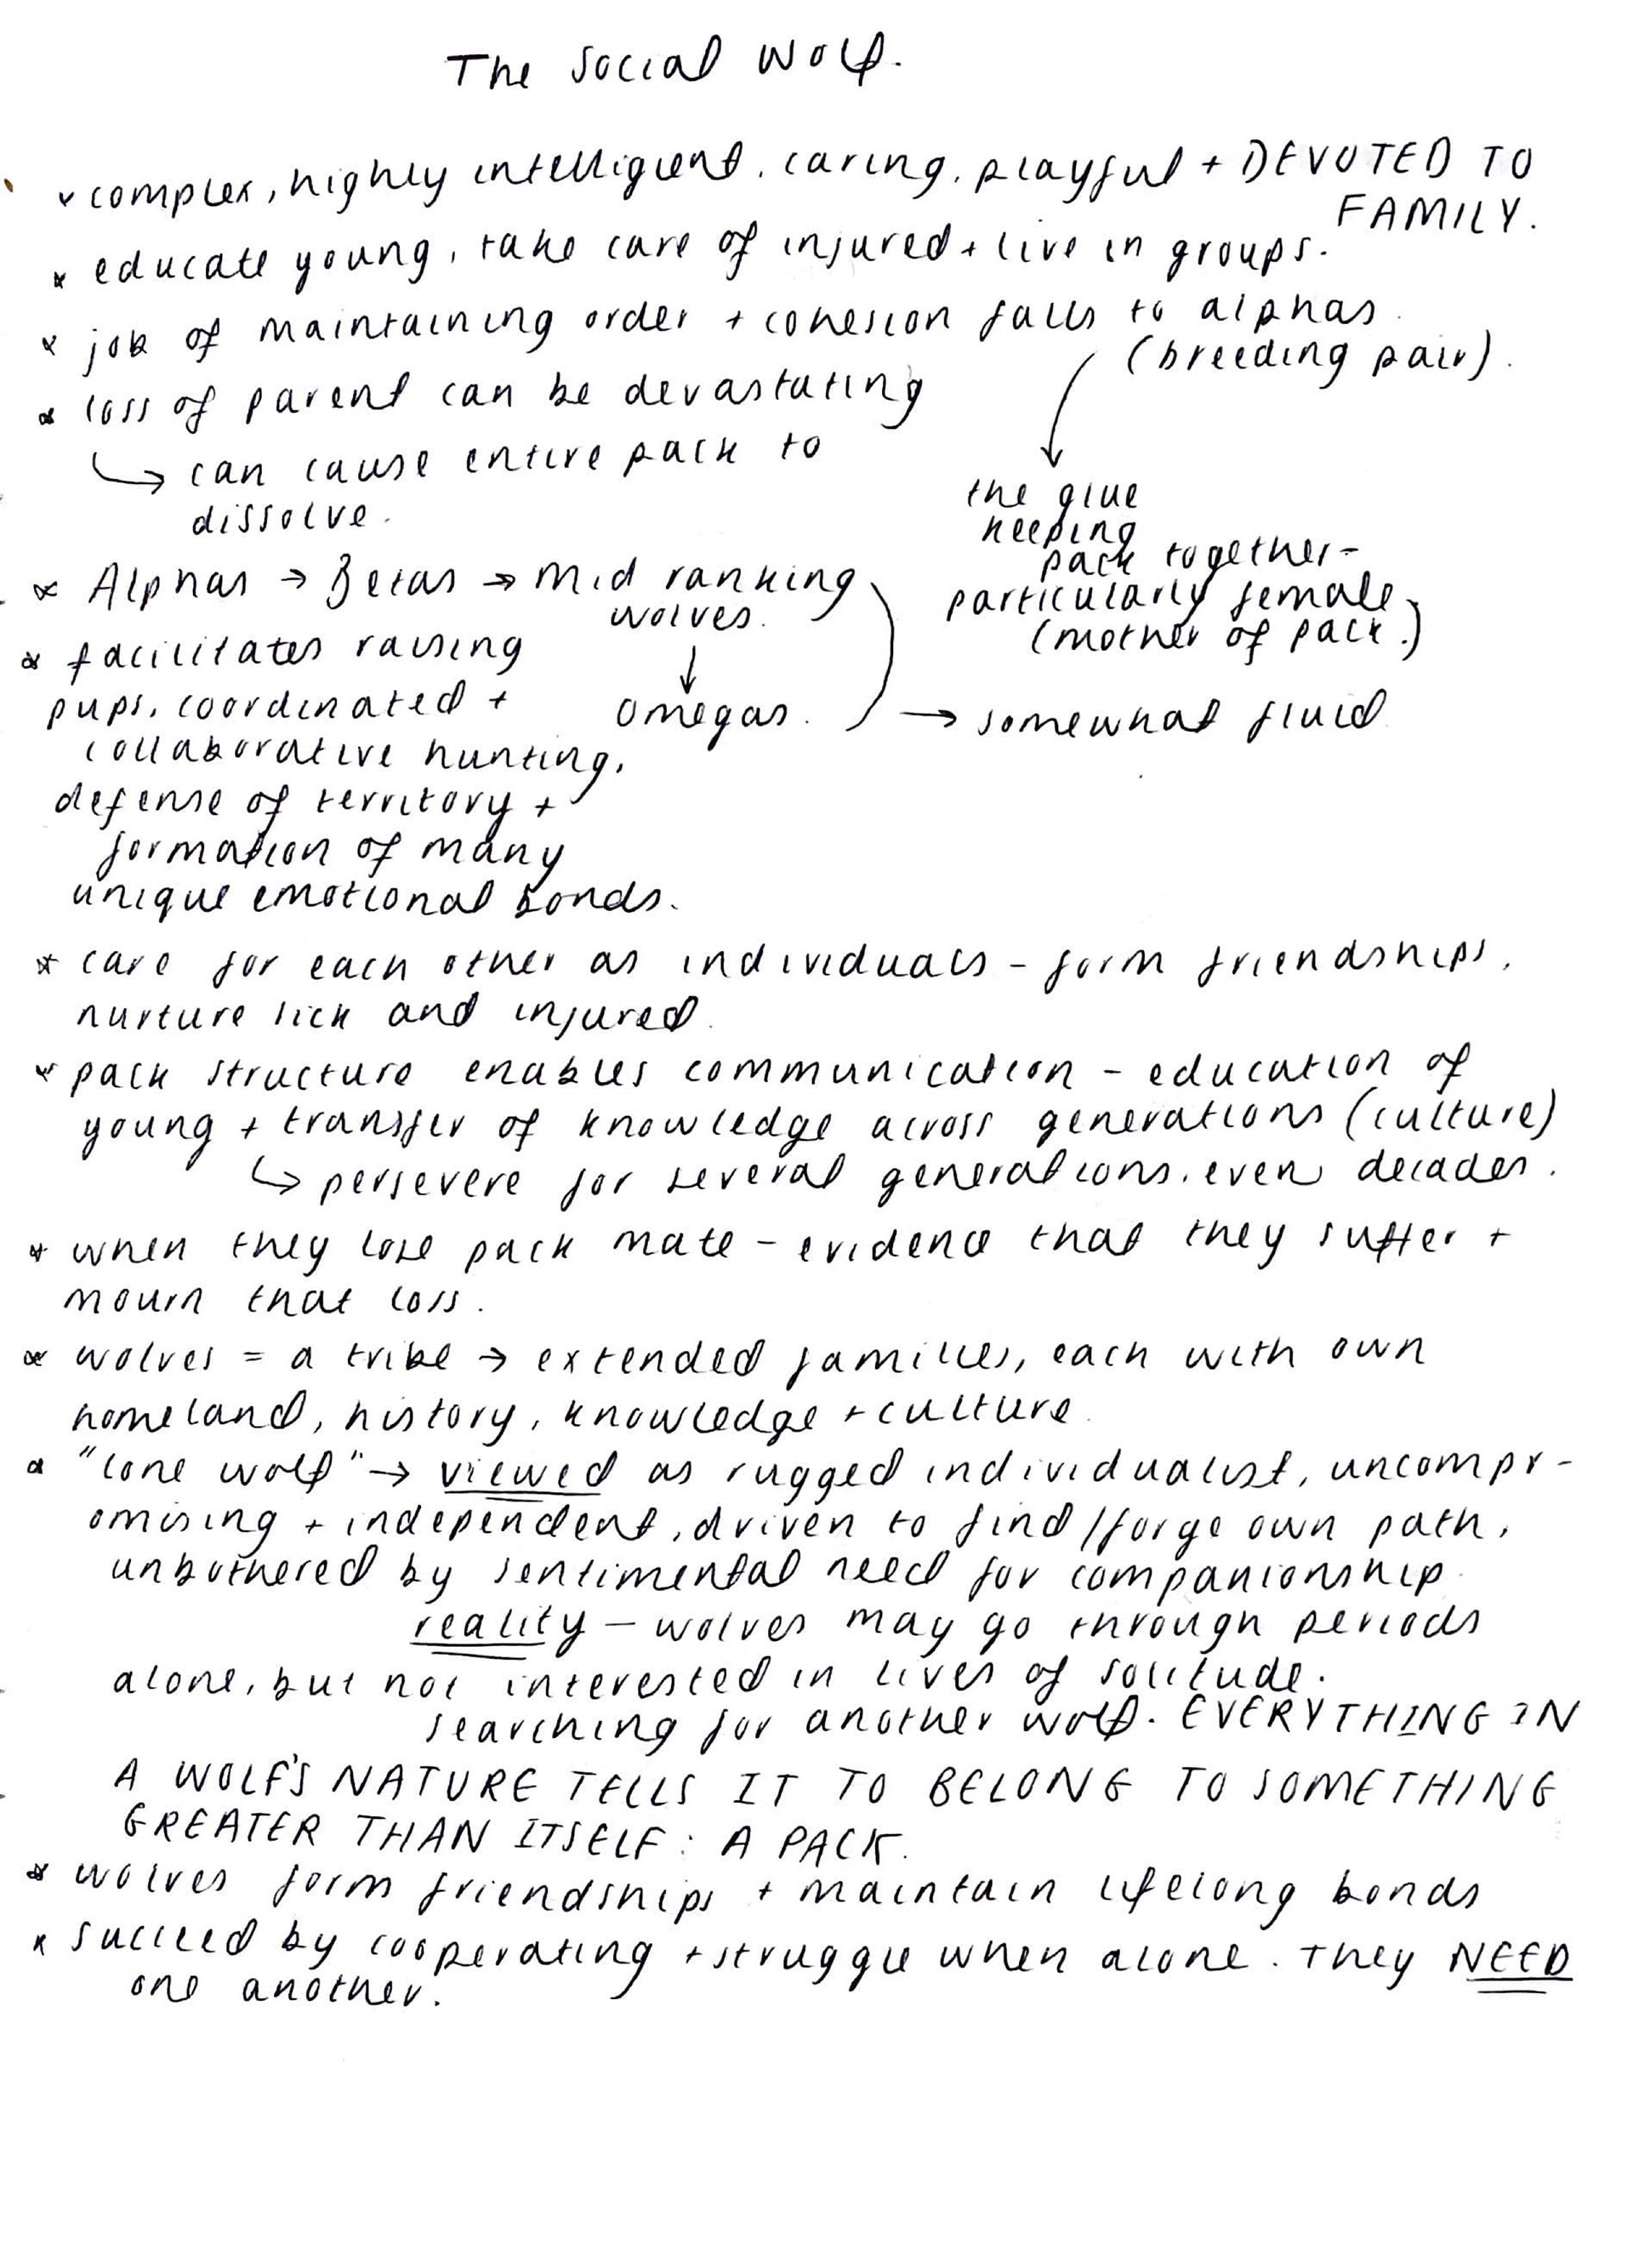 The Social Wolf.
* complex, highly intelligient, caring, playful + DEVOTED TO
FAMILY.
* educate young, take care of injured + live in groups.
* job of maintaining order + cohesion falls to alphas.
(breeding pair).
* loss of parent can be devastating
↳ can cause entire pack to
dissolve.
the glue
keeping
pack together -
particularly female
(mother of pack.)
* Alphas → Betas → Mid ranking
wolves.
↓
Omegas.
→ somewhat fluid
* facilitates raising
pups, coordinated +
collaborative hunting,
defense of territory +
formation of many
unique emotional bonds.
* care for each other as individuals - form friendships,
nurture sick and injured.
* pack structure enables communication - education of
young + transfer of knowledge across generations (culture)
↳ persevere for several generations, even decades.
* when they lose pack mate - evidence that they suffer +
mourn that loss.
* wolves = a tribe → extended families, each with own
homeland, history, knowledge + culture.
* "lone wolf" → viewed as rugged individualist, uncompr-
omising + independent, driven to find / forge own path,
unbothered by sentimental need for companionship.
reality - wolves may go through periods
alone, but not interested in lives of solitude.
searching for another wolf. EVERYTHING IN
A WOLF'S NATURE TELLS IT TO BELONG TO SOMETHING
GREATER THAN ITSELF: A PACK.
* wolves form friendships + maintain lifelong bonds
* succeed by cooperating + struggle when alone. They NEED
one another.